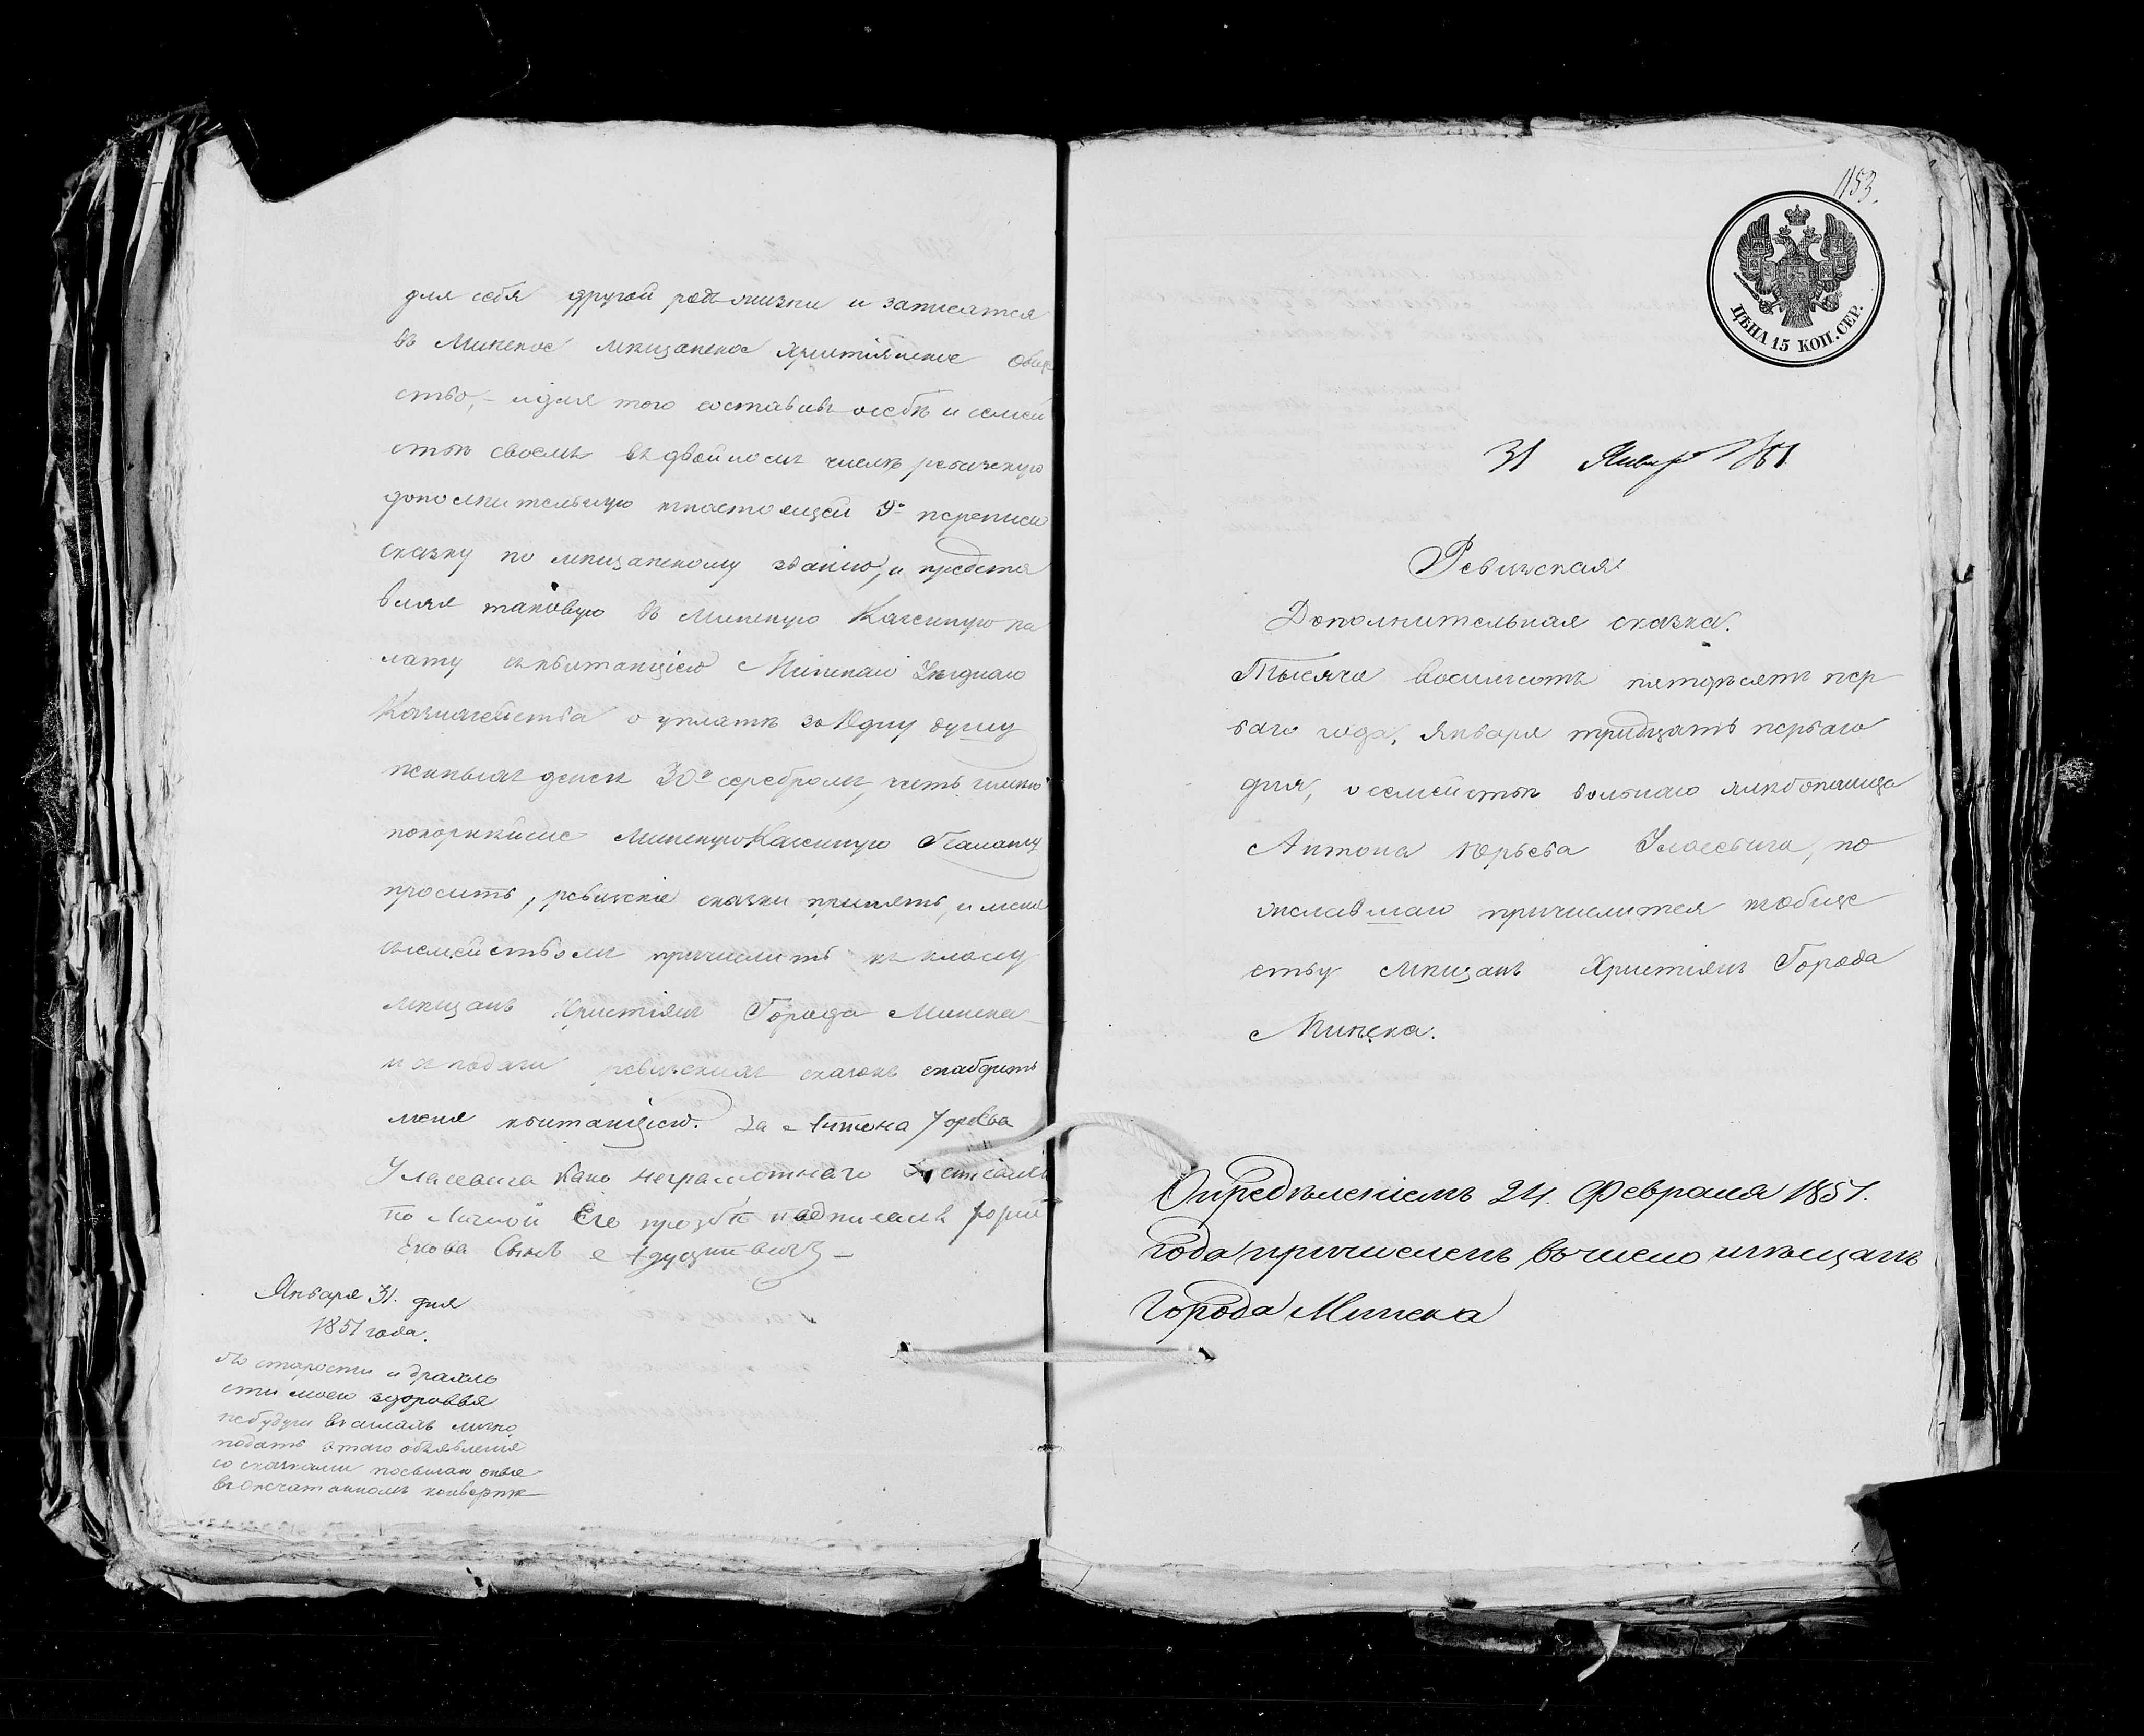 для себя другой родъ жизни и записатся
въ Минское мѣщанское христіянское обще
ство, - и для того составивъ о себѣ и семей
ствѣ своемъ въ двойномъ числѣ ревижскую
дополнительную къ настоящей 9й переписи
сказку по мѣщанскому званію, и предста
вляя таковую въ Минскую Казенную па
лату съ квитанціею Минскаго Уѣзднаго
Казначейства о уплатѣ за одну душу
денегъ 30 к серебромъ, честь имѣю
покорнѣйше Минскую Казенную Палату
просить, ревижскіе сказки принять, и меня
съ семействомъ причислить къ класу
мѣщанъ Христіянъ Города Минска
и о подачи ревижскихъ сказокъ снабдить
меня квитанціею. За Антона Юрьева
Уласевича како неграмотнаго
по Личной Его прозбѣ подписалъ
сынъ
Января 31. дня
1851 года.
По старости и дряхло
сти моего здоровья
небудучи въ силахъ лично
подать этаго объявленія
со сказками посылаю оные
въ опечатанномъ конвертѣ
1153.
ЦѢНА 15 КОП. СЕР.
31 Января 1851
Ревижская
Дополнительная сказка.
Тысяча восимсотъ пятдесятъ пер
ваго года, Января тридцать перваго
дня, о семействѣ вольнаго хлѣбопашца
Антона Юрьева Уласевича, по
желавшаго причислится къ обще
ству мѣщанъ Христіянъ Города
Минска.
Опредѣленіемъ 24. Февраля 1851.
года причисленъ въ число мѣщанъ
города Минска